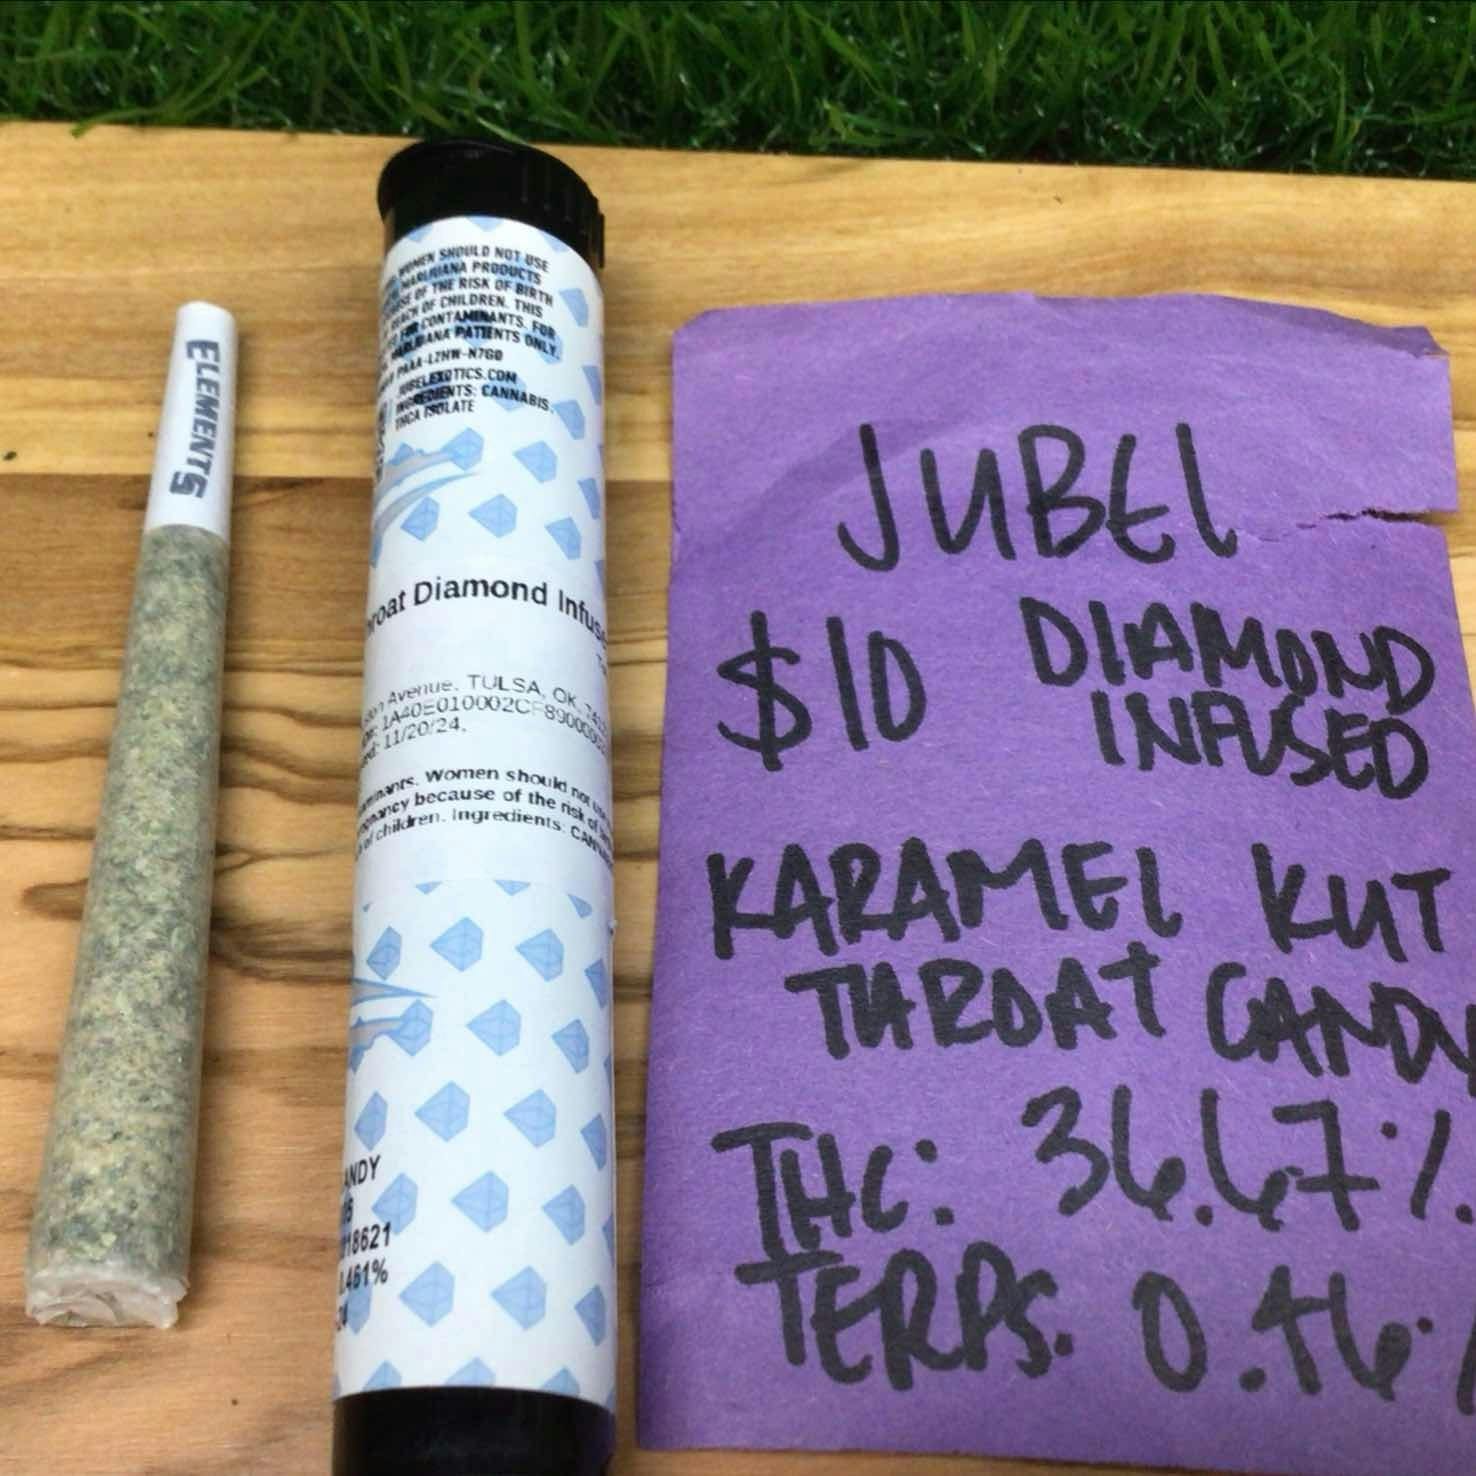 ELEMENTS
WOMEN SHOULD NOT USE
MARIJUANA PRODUCTS
OF THE RISK OF BIRTH
REACH OF CHILDREN. THIS
FOR CONTAMINANTS. FOR
MARIJUANA PATIENTS ONLY.
PAAA-LZHW-N7G0
JUBELEXOTICS.COM
INGREDIENTS: CANNABIS,
THCA ISOLATE
roat Diamond Infuse
Avenue, TULSA, OK,
1A40E010002CF890000
11/20/24,
Women should not
because of the risk of
of children. Ingredients:
ANDY
18621
0.461%
JUBEL
$10 DIAMOND
INFUSED
KARAMEL KUT
THROAT CANDY
THC: 36.67%
TERPS. 0.46